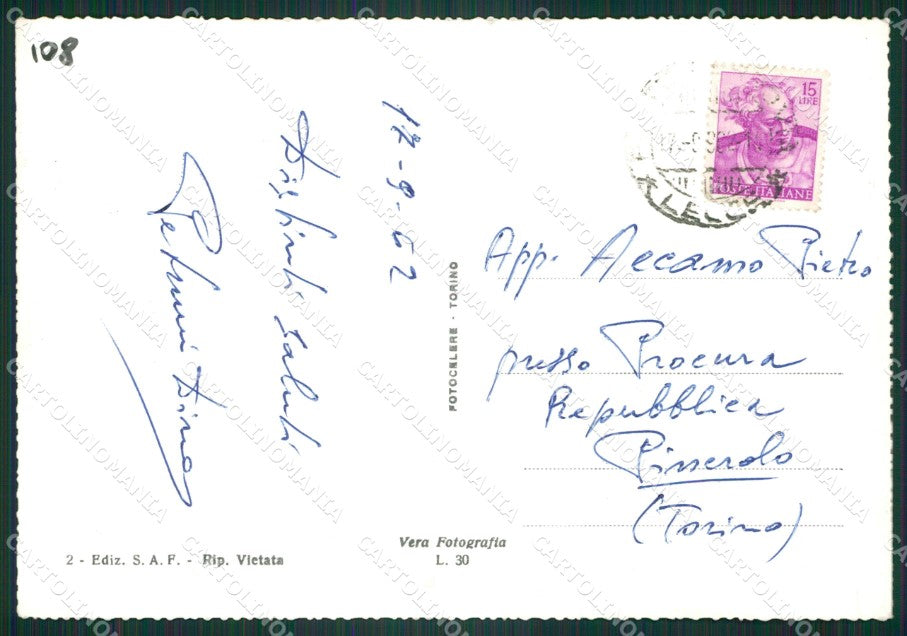 108
17-9-62
Distinti saluti
Dino
FOTOCELERE - TORINO
15
LIRE
POSTE ITALIANE
App. Accamo Pietro
presso Procura
Repubblica
Pinerolo
(Torino)
2 - Ediz. S. A. F. - Rip. Vietata
Vera Fotografia
L. 30
CARTOLINOMANIA